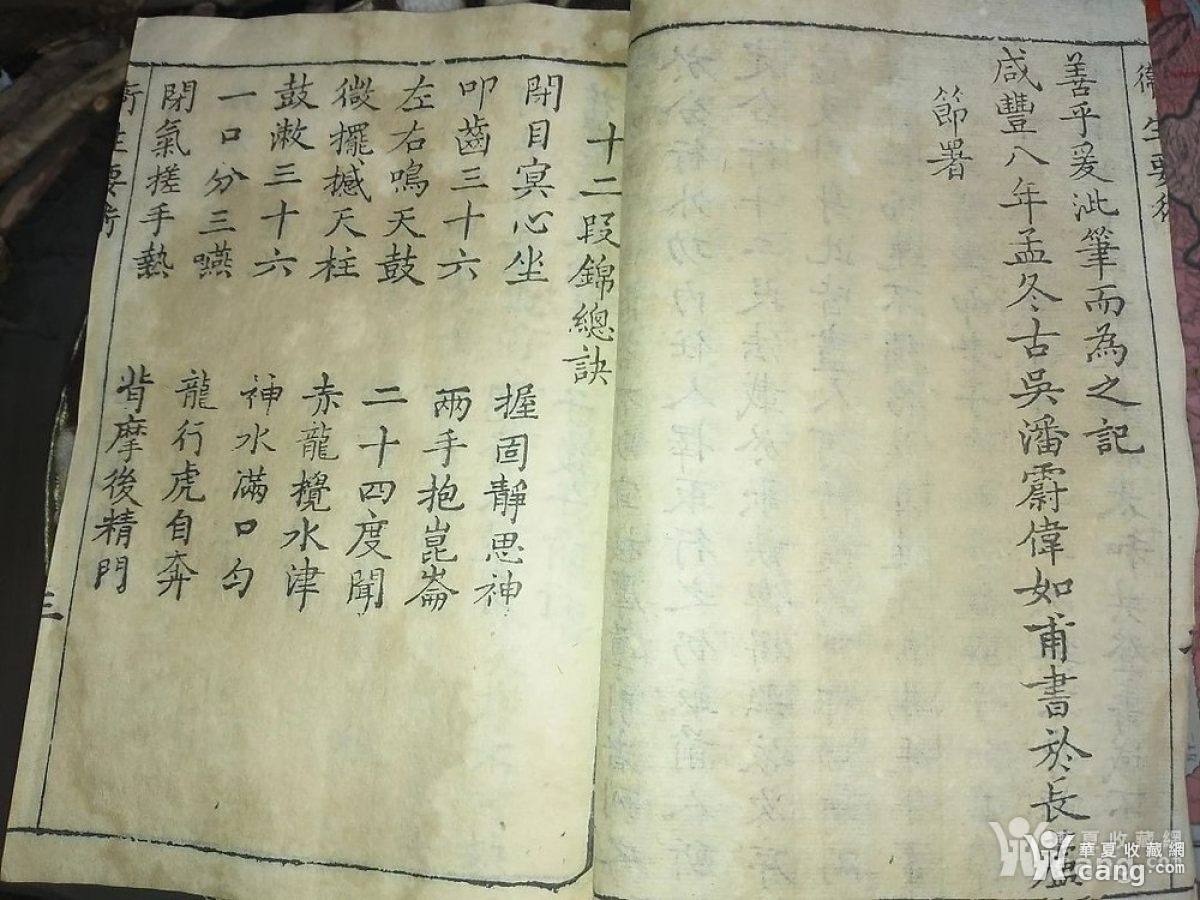 善乎爰泚筆而為之記
咸豐八年孟冬古吳潘霨偉如甫書於長蘆
節署
十二段錦總訣
閉目冥心坐
握固靜思神
叩齒三十六
兩手抱崑崙
左右鳴天鼓
二十四度聞
微擺撼天柱
赤龍攪水津
鼓漱三十六
神水滿口勻
一口分三嚥
龍行虎自奔
閉氣搓手熱
背摩後精門
三
華夏收藏網
cang.com